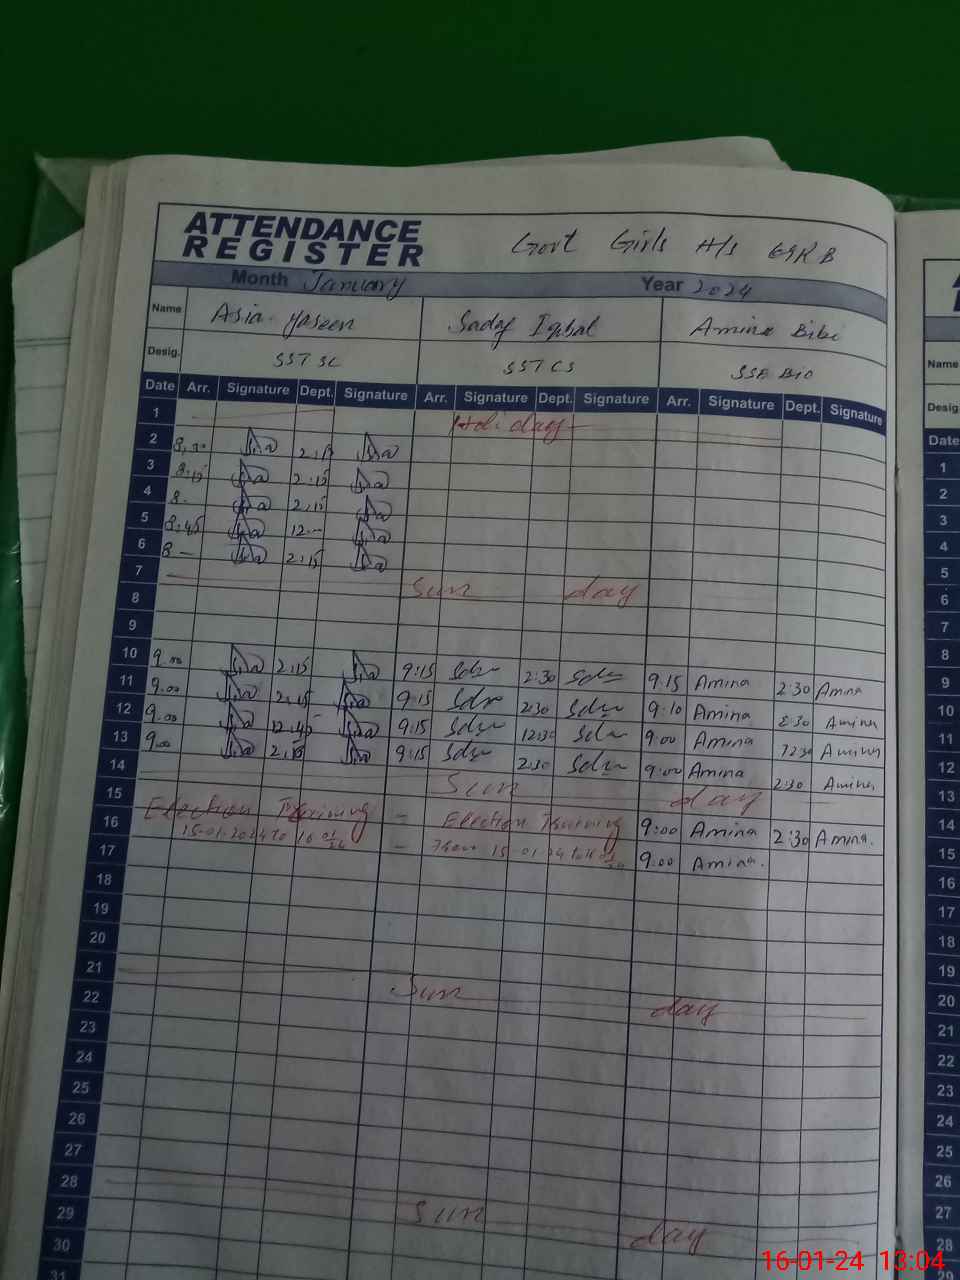 ATTENDANCE
REGISTER
Govt Girls H/S 69R B
Month January Year 2024
Name Asia Yaseen Sadaf Iqbal Amina Bibi Name
Desig. SST SC SST CS SSE Bio Desig.
Date Arr. Signature Dept. Signature Arr. Signature Dept. Signature Arr. Signature Dept. Signature Date
1 Holiday 1
2 8:30 2:15 2
3 8:15 2:15 3
4 8 2:15 4
5 8:45 12 5
6 8 2:15 6
7 Sun day 7
8 8
9 9
10 9.00 2:15 9:15 2:30 9.15 Amina 2:30 Amina 10
11 9.00 2:15 9:15 2:30 9:10 Amina 2:30 Amina 11
12 9.00 12:45 9:15 12:30 9:00 Amina 12:30 Amina 12
13 9.00 2:15 9:15 2:30 9:00 Amina 2:30 Amina 13
14 Sun day 14
15 Election Training - Election Training 9:00 Amina 2:30 Amina. 15
16 15-01-2024 to 16 01/24 - From 15-01-24 to 16 01/24 9:00 Amina. 16
17 17
18 18
19 19
20 20
21 Sun day 21
22 22
23 23
24 24
25 25
26 26
27 27
28 Sun day 28
29 29
30
31
16-01-24 13:04